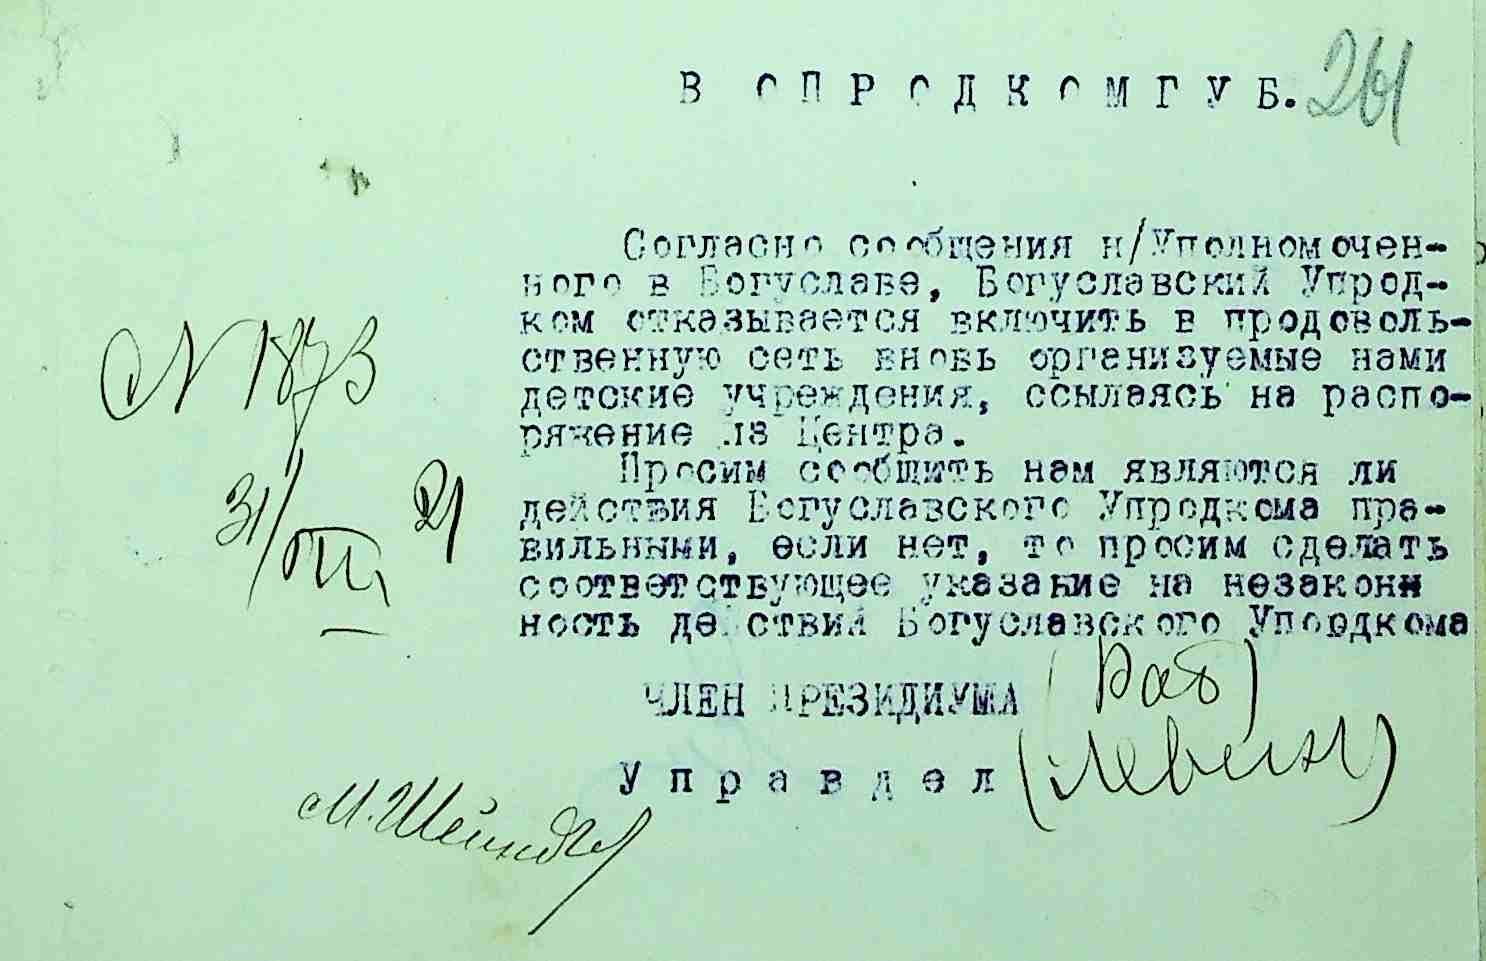 261
В ОПРОДКОМГУБ.
Согласно сообщения н/Уполномочен-
ного в Богуславе, Богуславский Упрод-
ком отказывается включить в продоволь-
ственную сеть вновь организуемые нами
детские учреждения, ссылаясь на распо-
ряжение из Центра.
Просим сообщить нам являются ли
действия Богуславского Упродкома пра-
вильными, если нет, то просим сделать
соответствующее указание на незаконн
ность действий Богуславского Упордкома
N 1873
31/VIII 21
ЧЛЕН ПРЕЗИДИУМА (Раб)
Управдел (Левин)
М.